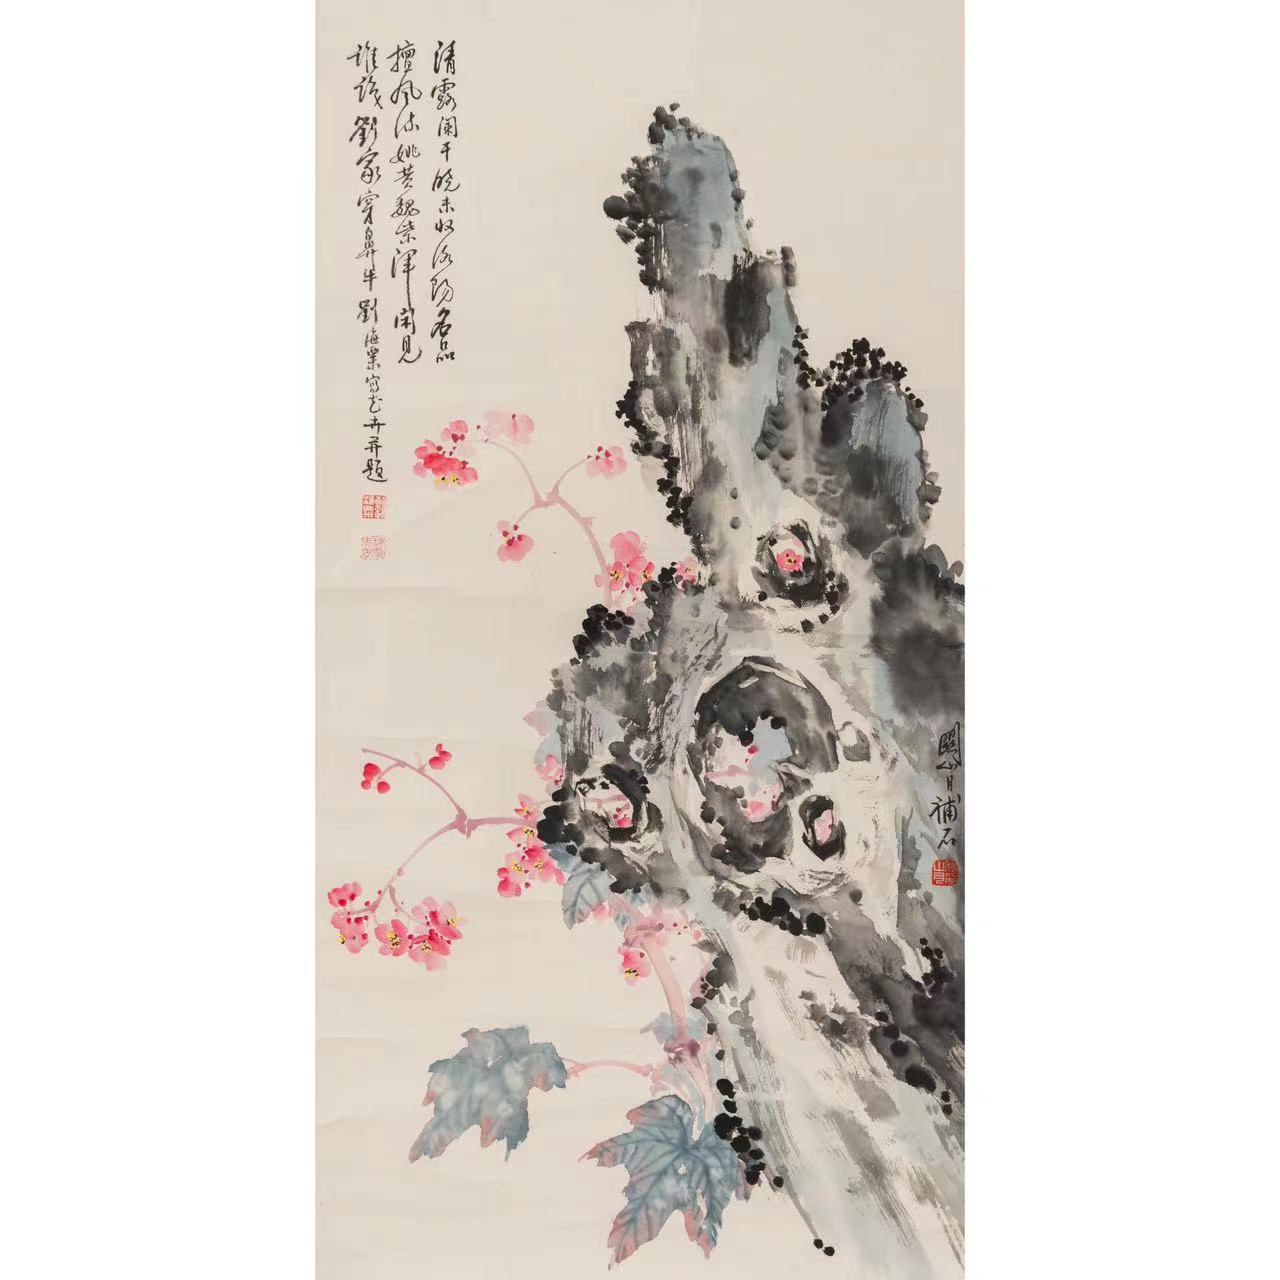 清露闌干曉未收洛陽名品
擅風流姚黃魏紫渾閑見
誰識劉家穿鼻牛劉海粟寫花卉并題
關山月補石